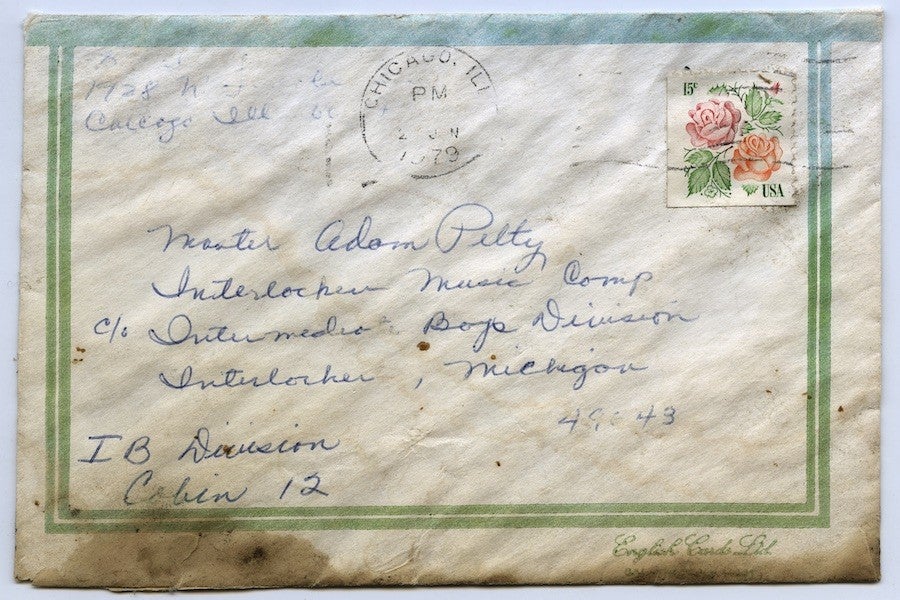 1928 W
Chicago Ill
CHICAGO, ILL
PM
2 JUN
1979
15c
USA
Master Adam Pelty
Interlochen Music Camp
c/o Intermediate Boys Division
Interlochen, Michigan
43
IB Division
Cabin 12
English Cards Ltd.